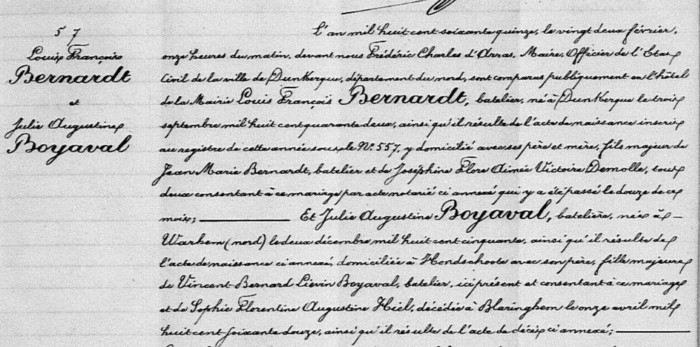 57
Louis François
Bernardt
et
Julie Augustine
Boyaval
L'an mil huit cent soixante quinze, le vingt deux février,
onze heures du matin, devant nous Frédéric Charles d'Arras, Maire, Officier de l'Etat
Civil de la ville de Dunkerque, département du nord, sont comparus publiquement en l'hôtel
de la Mairie Louis François Bernardt, batelier, né à Dunkerque le trois
septembre mil huit cent quarante deux, ainsi qu'il résulte de l'acte de naissance inscrit
au registre de cette année sous le No. 557, y domicilié avec ses père et mère, fils majeur de
Jean Marie Bernardt, batelier et de Joséphine Flore Aimée Victoire Demolle, tous
deux consentant à ce mariage par acte notarié ci annexé qui y a été passé le douze de ce
mois; Et Julie Augustine Boyaval, batelière, née à
Warhem (nord) le deux décembre mil huit cent cinquante, ainsi qu'il résulte de
l'acte de naissance ci annexé, domiciliée à Hondschoote avec son père, fille majeure
de Vincent Bernard Liévin Boyaval, batelier, ici présent et consentant à ce mariage
et de Sophie Florentine Augustine Hiel, décédée à Blaringhem le onze avril mil
huit cent soixante douze, ainsi qu'il résulte de l'acte de décès ci annexé;